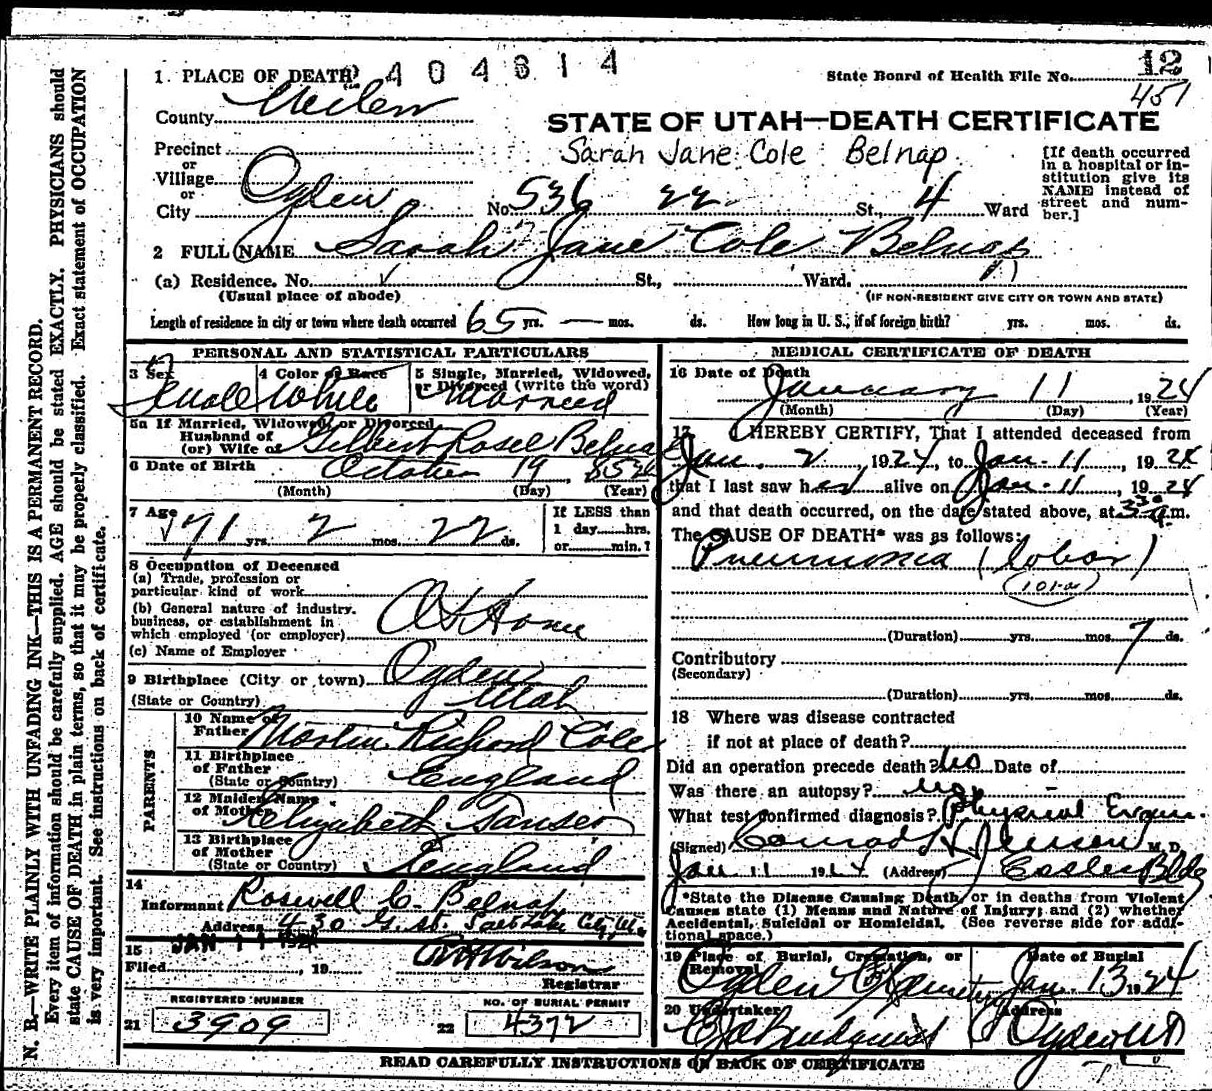 1. PLACE OF DEATH
404614
State Board of Health File No. 12
451
County
STATE OF UTAH—DEATH CERTIFICATE
Sarah Jane Cole Belnap
Precinct
or
Village
or
City Ogden No. 536 22 St., 4 Ward
[If death occurred
in a hospital or in-
stitution give its
NAME instead of
street and num-
ber.]
2 FULL NAME Sarah Jane Cole Belnap
(a) Residence. No. St., Ward.
(Usual place of abode)
(IF NON-RESIDENT GIVE CITY OR TOWN AND STATE)
Length of residence in city or town where death occurred 65 yrs. — mos. ds. How long in U. S., if of foreign birth? yrs. mos. ds.
PERSONAL AND STATISTICAL PARTICULARS
3 Sex
4 Color or Race
5 Single, Married, Widowed,
or Divorced (write the word)
Female White Married
5a If Married, Widowed, or Divorced
Husband of
(or) Wife of Gilbert Rosel Belnap
6 Date of Birth October 19
(Month) (Day) (Year)
7 Age 71 yrs. 2 mos. 22 ds.
If LESS than
1 day hrs.
or min.?
8 Occupation of Deceased
(a) Trade, profession or
particular kind of work
(b) General nature of industry.
business, or establishment in
which employed (or employer)
At Home
(c) Name of Employer
9 Birthplace (City or town) Ogden
(State or Country) Utah
PARENTS
10 Name of
Father Richard Cole
11 Birthplace
of Father
(State or Country) England
12 Maiden Name
of Mother Elizabeth
13 Birthplace
of Mother
(State or Country) England
14
Informant Roswell C. Belnap
Address 430 G. St. Salt Lake City Ut.
15 JAN 11 1924
Filed , 19
Registrar
Wilson
REGISTERED NUMBER
21 3909
NO. OF BURIAL PERMIT
22 4372
MEDICAL CERTIFICATE OF DEATH
16 Date of Death
January 11, 1924
(Month) (Day) (Year)
17 I HEREBY CERTIFY, That I attended deceased from
Jan. 2, 1924, to Jan. 11, 1924
that I last saw her alive on Jan. 11, 1924
and that death occurred, on the date stated above, at 3 30 a.m.
The CAUSE OF DEATH* was as follows:
Pneumonia (lobar)
(Duration) yrs. mos. 7 ds.
Contributory
(Secondary)
(Duration) yrs. mos. ds.
18 Where was disease contracted
if not at place of death?
Did an operation precede death? no Date of
Was there an autopsy? no -
What test confirmed diagnosis? Physical Exam.
(Signed) Conrad Jensen M. D.
Jan 11 1924 (Address) Eccles Bldg
*State the Disease Causing Death, or in deaths from Violent
Causes state (1) Means and Nature of Injury; and (2) whether
Accidental, Suicidal or Homicidal. (See reverse side for addi-
tional space.)
19 Place of Burial, Cremation, or
Removal
Date of Burial
Ogden Cemetery Jan. 13 1924
20 Undertaker
Address
Ogden Ut
READ CAREFULLY INSTRUCTIONS ON BACK OF CERTIFICATE
N. B.—WRITE PLAINLY WITH UNFADING INK—THIS IS A PERMANENT RECORD.
Every item of information should be carefully supplied. AGE should be stated EXACTLY. PHYSICIANS should
state CAUSE OF DEATH in plain terms, so that it may be properly classified. Exact statement of OCCUPATION
is very important. See instructions on back of certificate.